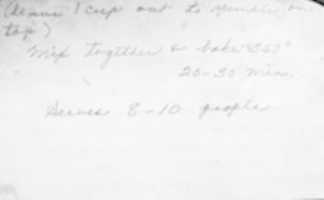 (Leave 1 cup out to sprinkle on
top)
Mix together & bake 350°
20-30 min.
Serves 8-10 people